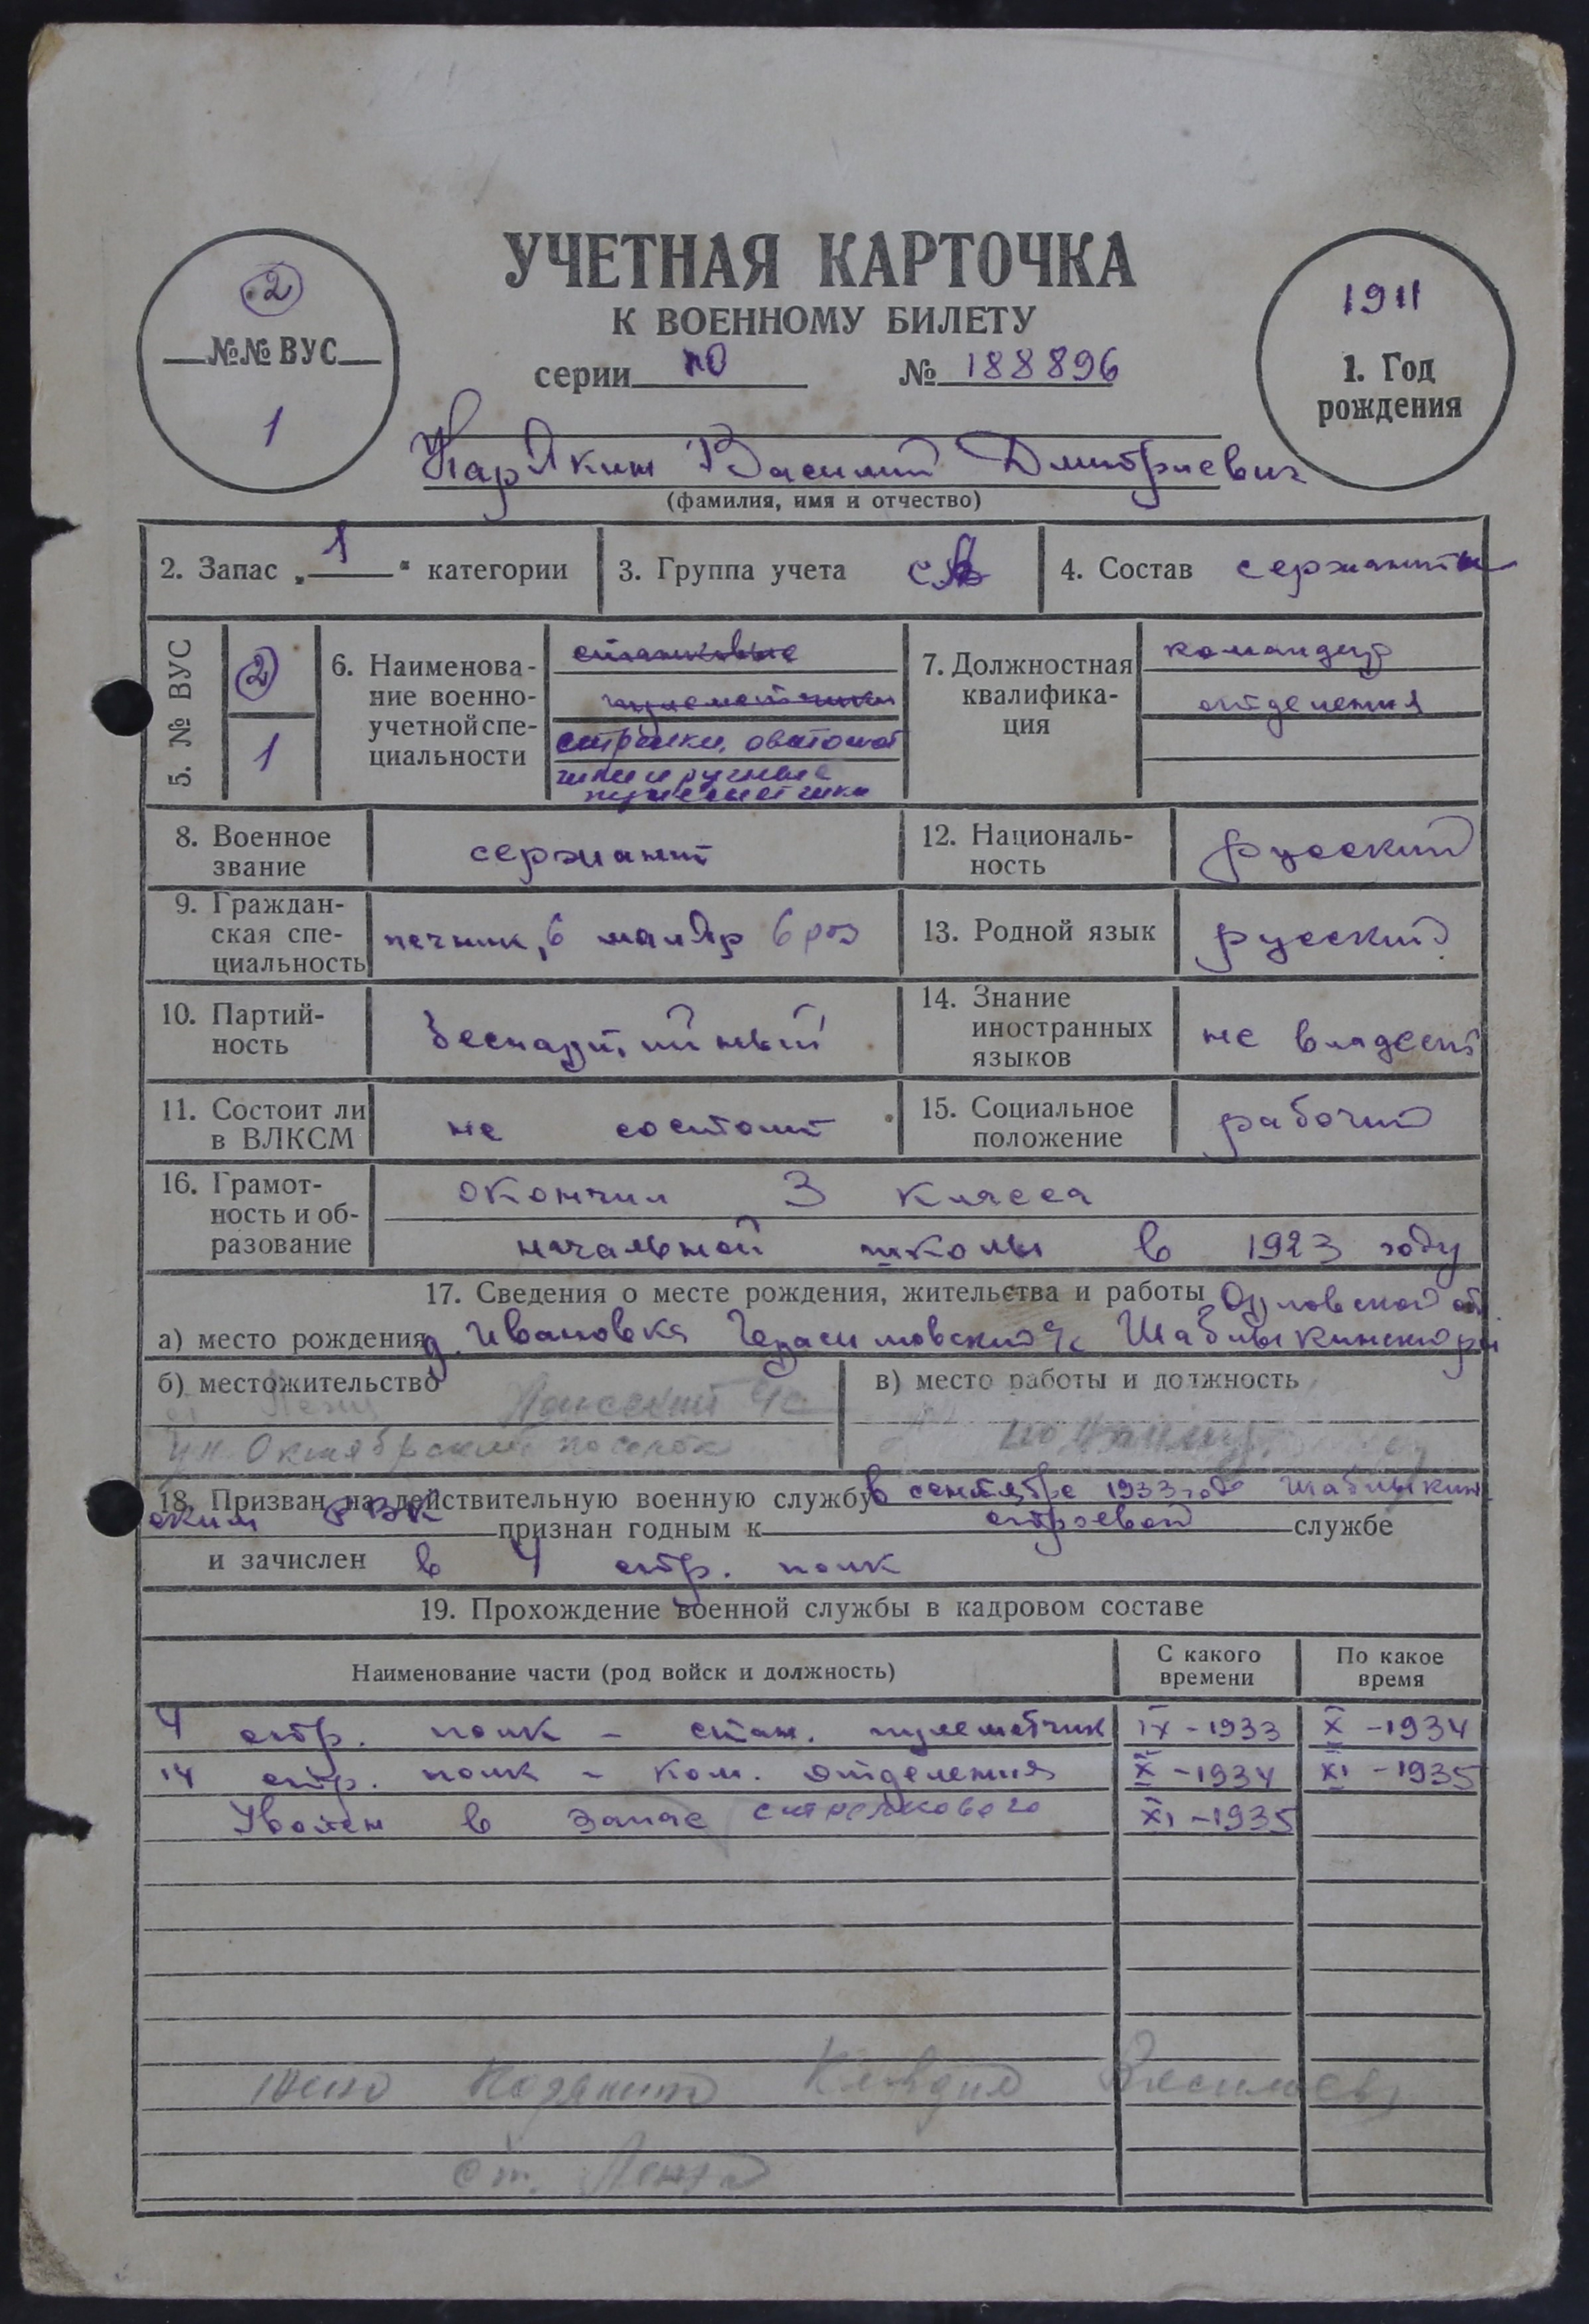 УЧЕТНАЯ КАРТОЧКА
К ВОЕННОМУ БИЛЕТУ
серии ПО № 188896
2
№№ ВУС
1
1911
1. Год
рождения
Карякин Василий Дмитриевич
(фамилия, имя и отчество)
2. Запас „1“ категории
3. Группа учета СА
4. Состав сержанты
5. № ВУС
2
1
6. Наименова-
ние военно-
учетной спе-
циальности
станковые
пулеметчики
стрелки, автомат
чики и ручные
пулеметчики
7. Должностная
квалифика-
ция
командир
отделения
8. Военное
звание
сержант
12. Националь-
ность
русский
9. Граждан-
ская спе-
циальность
печник, 6 маляр 6 раз
13. Родной язык
русский
10. Партий-
ность
беспартийный
14. Знание
иностранных
языков
не владеет
11. Состоит ли
в ВЛКСМ
не состоит
15. Социальное
положение
рабочий
16. Грамот-
ность и об-
разование
окончил 3 класса
начальной школы в 1923 году
17. Сведения о месте рождения, жительства и работы Орловской об
а) место рождения д. Ивановка Герасимовский с/с Шаблыкинский р-н
б) местожительство
ул. Октябрьский поселок
в) место работы и должность
18. Призван на действительную военную службу в сентябре 1933 года Шаблыкин
ским РВК признан годным к строевой службе
и зачислен в 4 стр. полк
19. Прохождение военной службы в кадровом составе
Наименование части (род войск и должность)
С какого
времени
По какое
время
4 стр. полк - стан. пулеметчик IX - 1933 X - 1934
14 стр. полк - ком. отделения X - 1934 XI - 1935
стрелкового
Уволен в запас XI - 1935
Клавдия Васильев
ст.